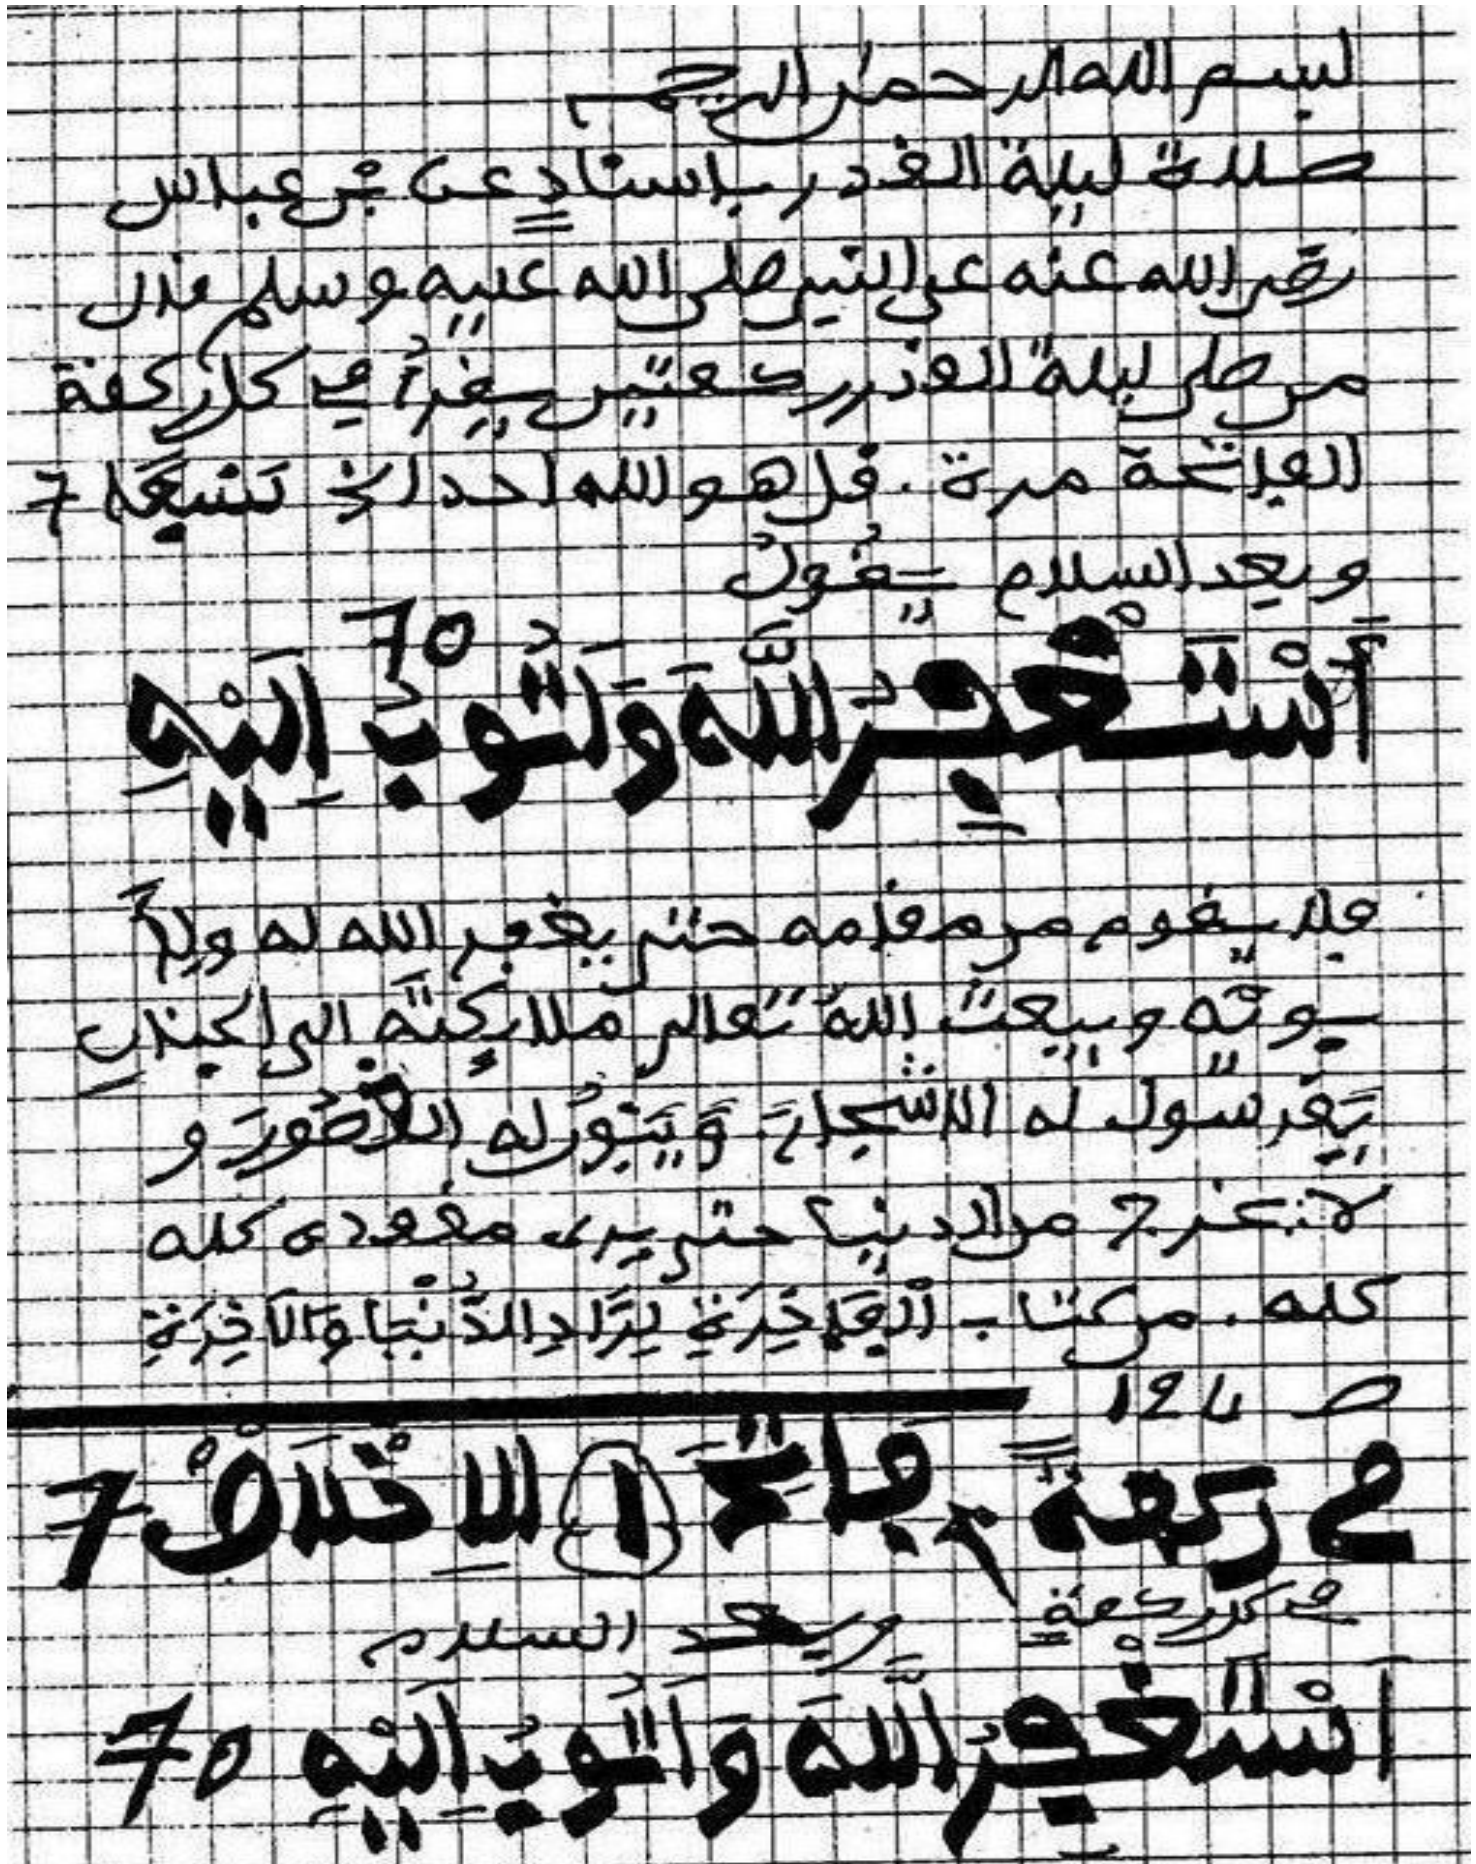 بسم الله الرحمن الرحيم
صلاة ليلة القدر بإسناد عن بن عباس
رضي الله عنه عن النبي صلى الله عليه وسلم قال
من صلى ليلة القدر ركعتين يقرأ في كل ركعة
الفاتحة مرة. قل هو الله احد الخ تسبيعا 7
وبعد السلام يقول
70
أَسْتَغْفِرُ اللَّهَ وَأَتُوبُ إِلَيْهِ
فلا يقوم من مقامه حتى يغفر الله له ولأ
بويه ويبعث الله تعالى ملائكته الى الجنان
يغرسون له الاشجار وَيَبْنُون له القصور و
لا يخرج من الدنيا حتى يرى مقعده كله
كله. من كتاب
ص 124
في ركعة فاتحة 1 الاِخْلَاصْ 7
في كل ركعة وبعد السلام
اَسْتَغْفِرُ اللَّهَ وَاَتُوبُ اِلَيْهِ 70